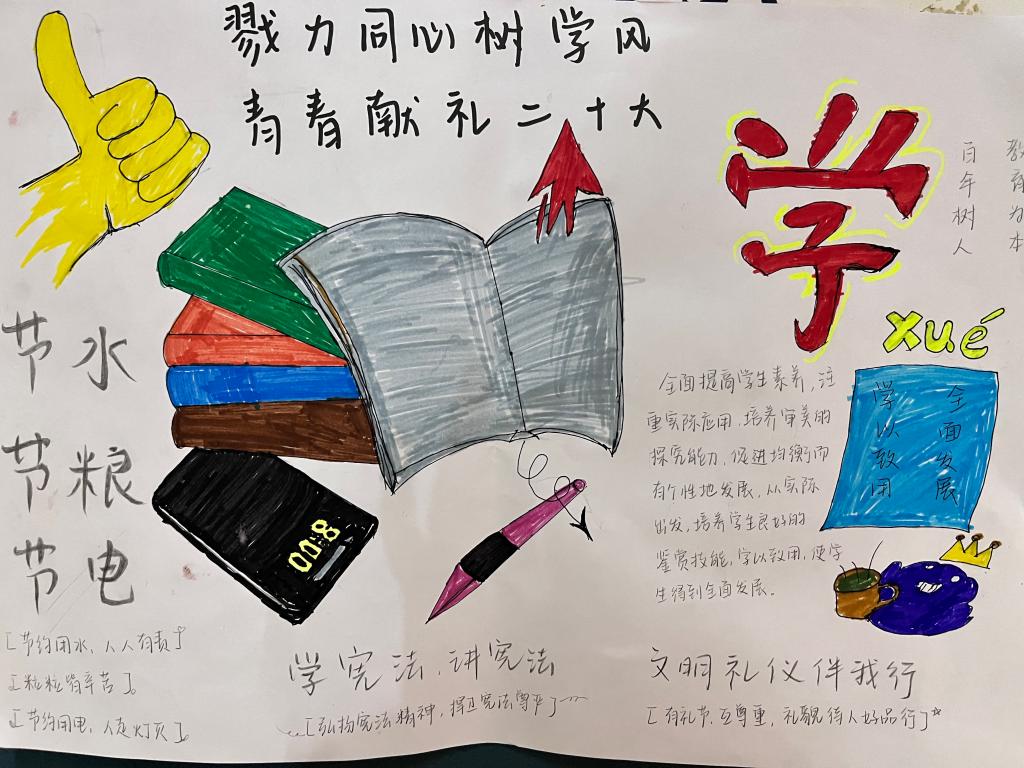 戮力同心树学风
青春献礼二十大
学
xué
教育为本
百年树人
节水
节粮
节电
[节约用水，人人有责]
[粒粒皆辛苦]。
[节约用电，人走灯灭]。
00:8
全面提高学生素养，注
重实际应用，培养审美的
探究能力，促进均衡而
有个性地发展，从实际
出发，培养学生良好的
鉴赏技能，学以致用，使学
生得到全面发展。
全面发展
学以致用
学宪法，讲宪法
[弘扬宪法精神，捍卫宪法尊严]
文明礼仪伴我行
[有礼节，互尊重，礼貌待人好品行]